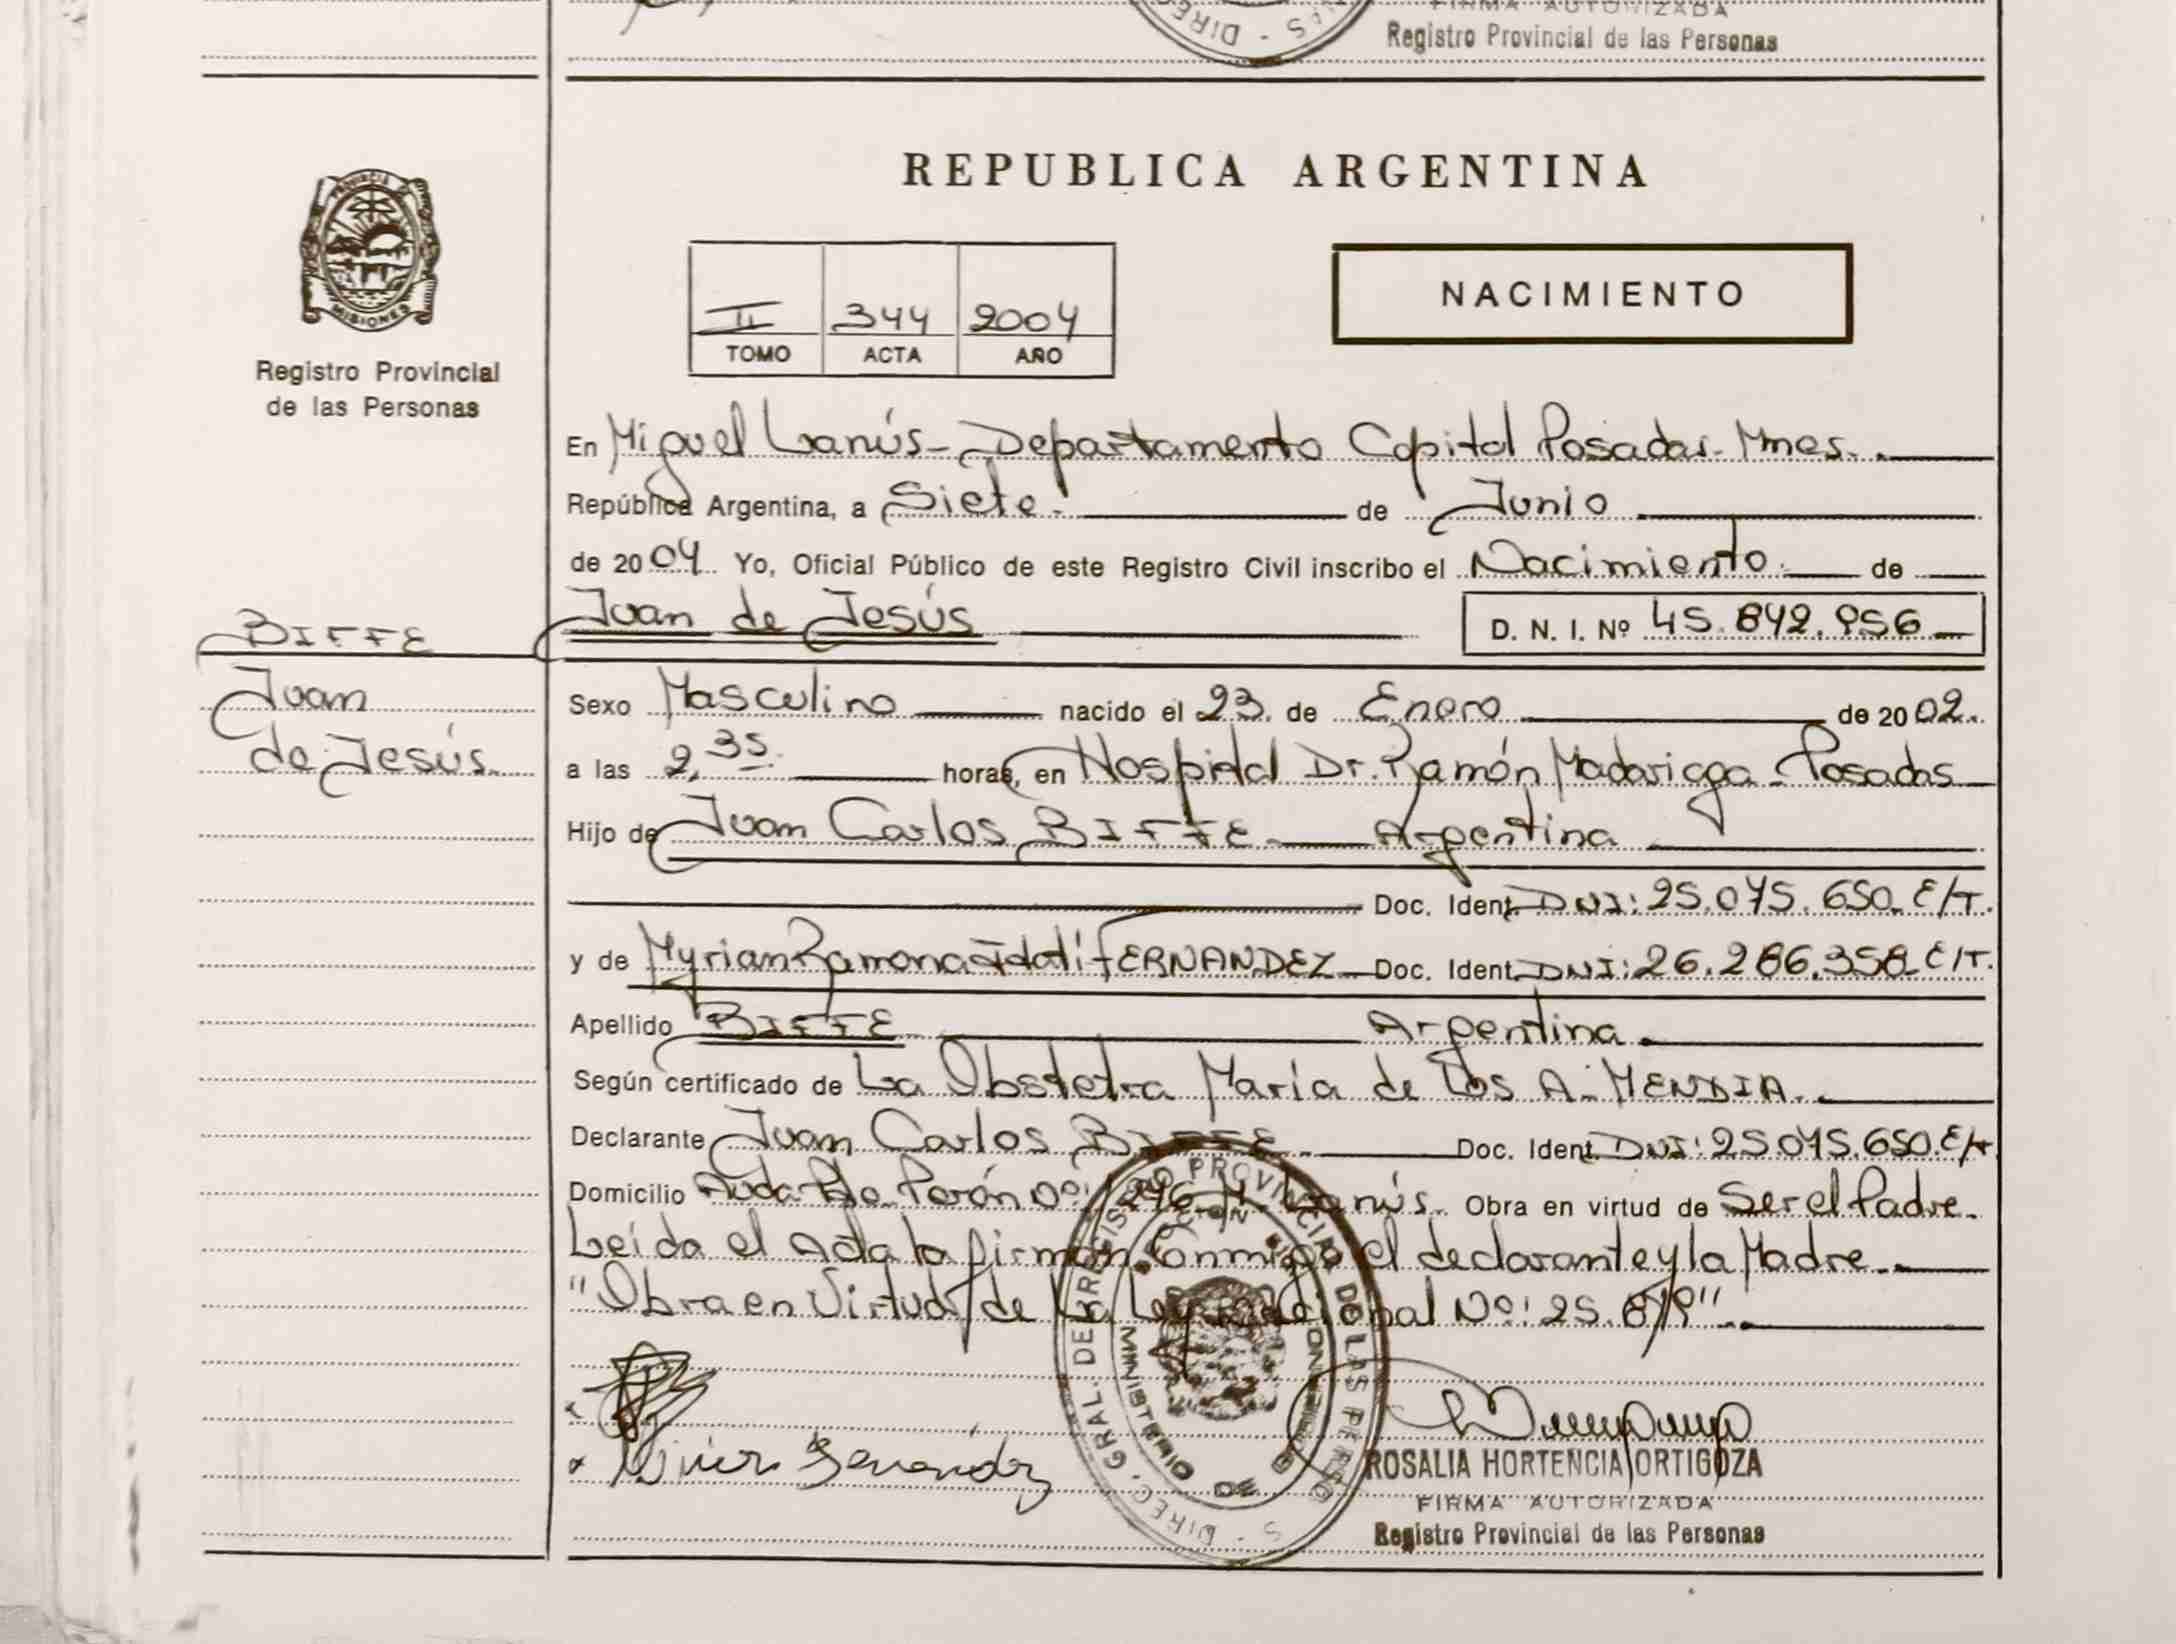 FIRMA AUTORIZADA
Registro Provincial de las Personas
PROVINCIA DE
MISIONES
Registro Provincial
de las Personas
REPUBLICA ARGENTINA
II 344 2004
TOMO ACTA AÑO
NACIMIENTO
En Miguel Lanús - Departamento Capital Posadas - Mnes.
República Argentina, a Siete de Junio
de 2004 Yo, Oficial Público de este Registro Civil inscribo el Nacimiento de
BIFFE
Juan de Jesús
D. N. I. Nº 45.842.956
Juan
de Jesús
Sexo Masculino nacido el 23 de Enero de 2002
a las 2,35 horas, en Hospital Dr. Ramón Madariaga - Posadas
Hijo de Juan Carlos BIFFE Argentina
Doc. Ident. DNI: 25.075.650 E/T.
y de Myrian Ramona Itatí FERNANDEZ Doc. Ident. DNI: 26.286.358 E/T.
Apellido BIFFE Argentina
Según certificado de La Obstetra María de Los A. MENDIA.
Declarante Juan Carlos BIFFE Doc. Ident. DNI: 25.075.650. E/T
Domicilio Avda. Pte. Perón Nº: M. Lanús. Obra en virtud de Ser el Padre.
Leída el Acta la firman Conmigo el declarante y la Madre.
"Obra en Virtud de La Ley Nacional Nº: 25.819"
DIREC. GRAL. DE REGISTRO PROVINCIAL DE LAS PERSONAS
MINISTERIO DE
ROSALIA HORTENCIA ORTIGOZA
FIRMA AUTORIZADA
Registro Provincial de las Personas